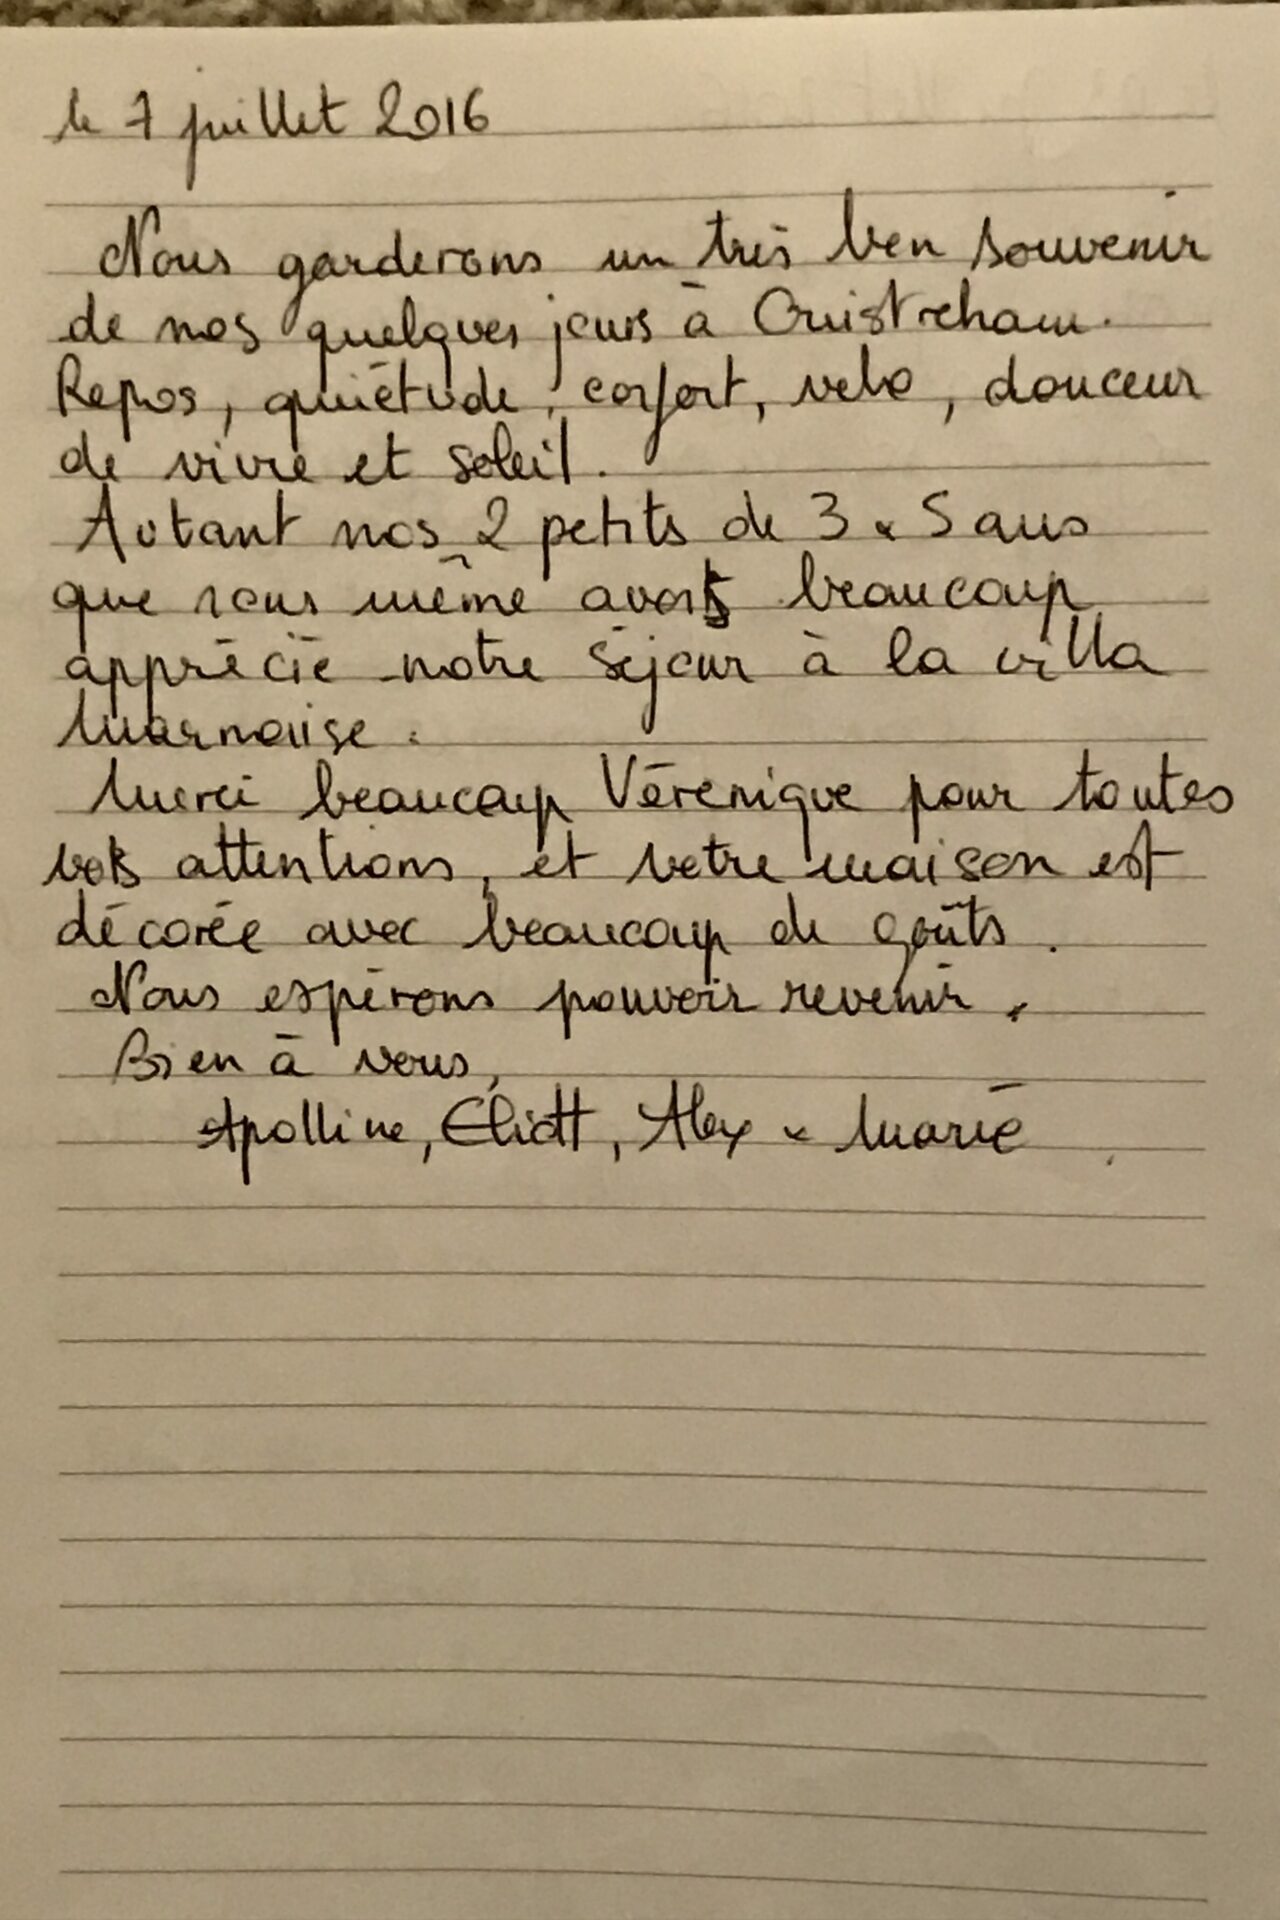 le 7 juillet 2016
Nous garderons un très bon souvenir
de nos quelques jours à Ouistreham.
Repos, quiétude, confort, vélo, douceur
de vivre et soleil.
Autant nos 2 petits de 3 & 5 ans
que nous même avons beaucoup
apprécié notre séjour à la villa
Marnaise.
Merci beaucoup Véronique pour toutes
vos attentions, et votre maison est
décorée avec beaucoup de goûts.
Nous espérons pouvoir revenir.
Bien à vous,
Apolline, Eliott, Alex & Marie